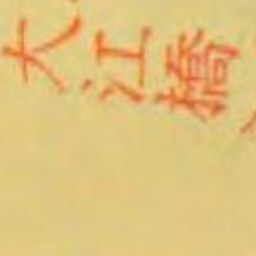 大江橋